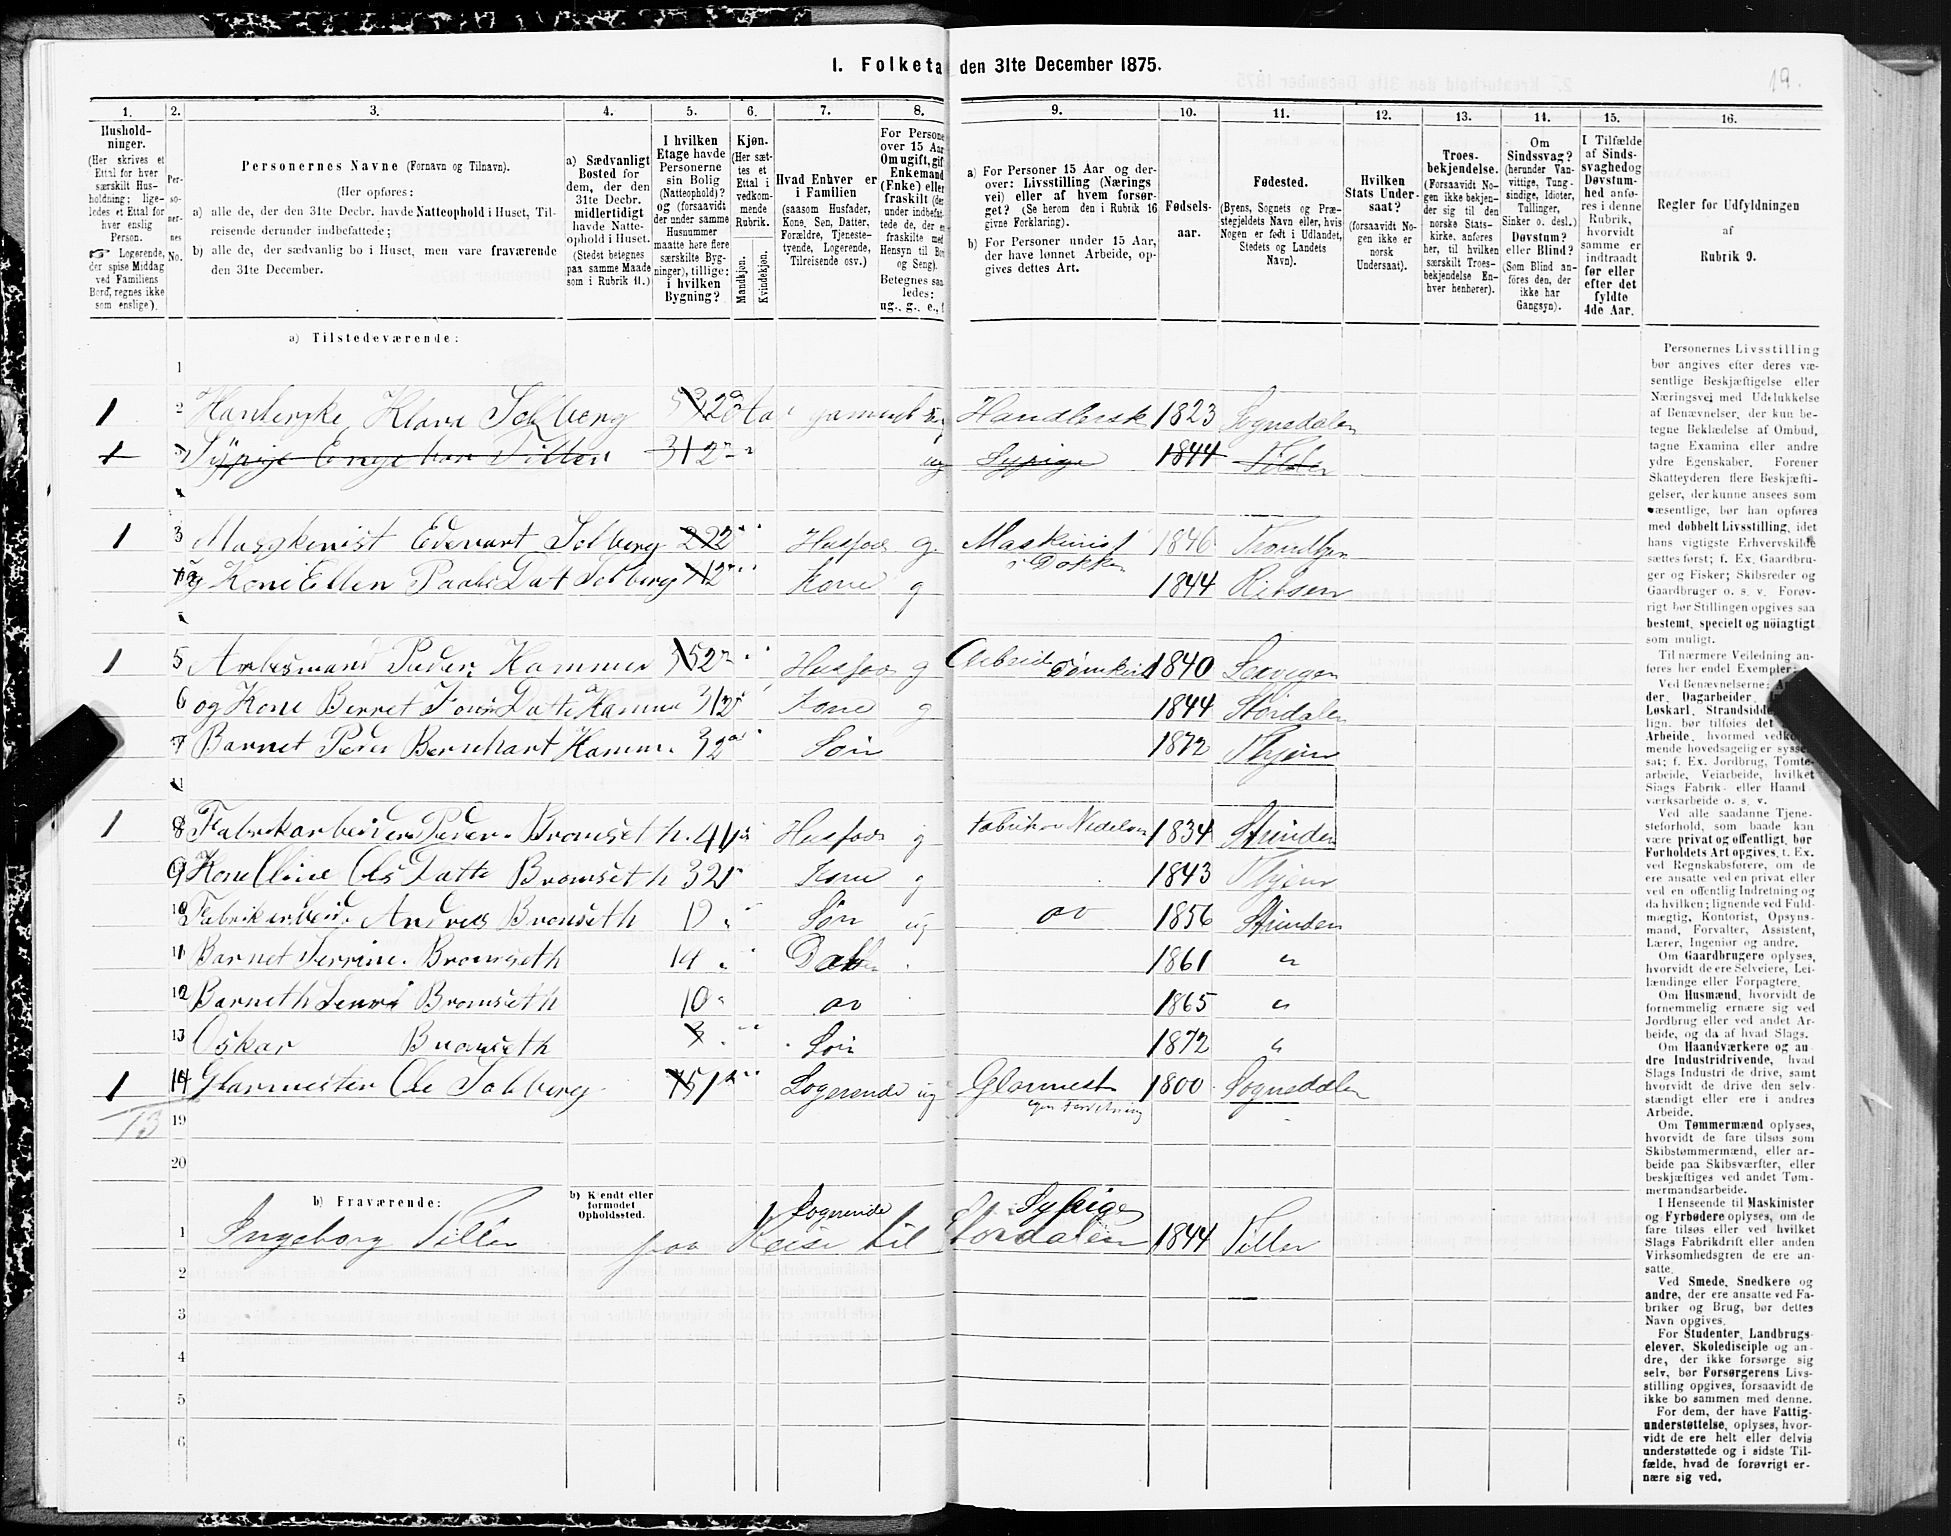 1. Folketa den 31te December 1875.
19.
1. 2. 3. 4. 5. 6. 7. 8. 9. 10. 11. 12. 13. 14. 15. 16.
Hushold-
ninger.
(Her skrives et
Ettal for hver
særskilt Hus-
holdning; lige-
ledes et Ettal for
hver enslig
Person.
☞ Logerende,
der spise Middag
ved Familiens
Bord, regnes ikke
som enslige).
Per-
so-
ner-
nes
No.
Personernes Navne (Fornavn og Tilnavn).
(Her opføres:
a) alle de, der den 31te Decbr. havde Natteophold i Huset, Til-
reisende derunder indbefattede;
b) alle de, der sædvanlig bo i Huset, men vare fraværende
den 31te December.
a) Sædvanligt
Bosted for
dem, der den
31te Decbr.
midlertidigt
havde Natte-
ophold i Huset.
(Stedet betegnes
paa samme Maade
som i Rubrik 11.)
I hvilken
Etage havde
Personerne
sin Bolig
(Natteophold)?
og (forsaavidt
der under samme
Husnummer
maatte høre flere
særskilte Byg-
ninger), tillige:
i hvilken
Bygning?
Kjøn.
(Her sæt-
tes et
Ettal i
vedkom-
mende
Rubrik.
Mandkjøn.
Kvindekjøn.
Hvad Enhver er
i Familien
(saasom Husfader,
Kone, Søn, Datter,
Forældre, Tjeneste-
tyende, Logerende,
Tilreisende osv.)
For Persone
over 15 Aar
Om ugift, gif
Enkemand
(Enke) eller
fraskilt (der
under indbefat-
tede de, der e
fraskilte med
Hensyn til Bo
og Seng).
Betegnes saa
ledes:
ug., g., e.,
a) For Personer 15 Aar og der-
over: Livsstilling (Nærings
vei) eller af hvem forsør-
get? (Se herom den i Rubrik 16
givne Forklaring).
b) For Personer under 15 Aar,
der have lønnet Arbeide, op-
gives dettes Art.
Fødsels-
aar.
Fødested.
(Byens, Sognets og Præ-
stegjeldets Navn eller, hvis
Nogen er født i Udlandet,
Stedets og Landets
Navn).
Hvilken
Stats Under-
saat?
(forsaavidt No-
gen ikke er
norsk
Undersaat).
Troes-
bekjendelse.
(Forsaavidt No-
gen ikke bekjen-
der sig til den
norske Stats-
kirke, anføres
her, til hvilken
særskilt Troes-
bekjendelse En-
hver henhører).
Om
Sindssvag?
(herunder Van-
vittige, Tung-
sindige, Idioter,
Tullinger,
Sinker o. desl.)
Døvstum?
eller Blind?
(Som Blind an-
føres den, der
ikke har
Gangsyn).
I Tilfælde
af Sinds-
svaghed og
Døvstum-
hed anfø-
res i denne
Rubrik,
hvorvidt
samme er
indtraadt
før eller
efter det
fyldte
4de Aar.
Regler for Udfyldningen
af
Rubrik 9.
a) Tilstedeværende:
1
1 2 Klara Solberg 1823 Sognedalen
1 Tiller ug Sypige 1844 Tiller
1 3 Edevart Solberg Husfar g. Maskinist 1846
i Dokken
Kone Ellen Solberg Kone g 1844
1 5 Peder Hammer Husfar g 1840
6 og Kone Berret Kone g 1844 Størdalen
7 Barnet Peder Bernhart Søn 1872
1 8 Fabrikarbeider Peder Bromseth Husfar g 1834 Strinden
9 Kone Bromseth Kone g 1843
10 Andreas Bromseth Søn ug 1856 Strinden
11 Barnet Bromseth 14 1861 "
12 Barneth Bromseth 10 1865 "
13 Oskar Bromseth 3 Søn 1872 "
1 14 Glarmester Ole Solberg Logerende ug Glarmest 1800 Sognedalen
13 19
20
b) Fraværende:
b) Kjendt eller
formodet
Opholdssted.
Logerende Sypige
1 Ingeborg Tiller paa Reise til Størdalen 1844 Tiller
2
3
4
5
6
Personernes Livsstilling
bør angives efter deres væ-
sentlige Beskjæftigelse eller
Næringsvei med Udelukkelse
af Benævnelser, der kun be-
tegne Beklædelse af Ombud,
tagne Examina eller andre
ydre Egenskaber. Forener
Skatteyderen flere Beskjæfti-
gelser, der kunne ansees som
væsentlige, bør han opføres
med dobbelt Livsstilling, idet
hans vigtigste Erhvervskilde
sættes først; f. Ex. Gaardbru-
ger og Fisker; Skibsreder og
Gaardbruger o. s. v. Forøv-
rigt bør Stillingen opgives saa
bestemt, specielt og nøiagtigt
som muligt.
Til nærmere Veiledning an-
føres her endel Exempler:
Ved Benævnelserne:
der, Dagarbeider,
Løskarl, Strandsidder
lign. bør tilføies det
Arbeide, hvormed vedkom-
mende hovedsagelig er syssel-
sat; f. Ex. Jordbrug, Tomte-
arbeide, Veiarbeide, hvilket
Slags Fabrik- eller Haand
værksarbeide o. s. v.
Ved alle saadanne Tjene-
steforhold, som baade kan
være privat og offentligt, bør
Forholdets Art opgives, t. Ex.
ved Regnskabsførere, om de
ere ansatte ved en privat eller
ved en offentlig Indretning og
da hvilken; lignende ved Fuld-
mægtig, Kontorist, Opsyns-
mand, Forvalter, Assistent,
Lærer, Ingeniør og andre.
Om Gaardbrugere oplyses,
hvorvidt de ere Selveiere, Lei-
lændinge eller Forpagtere.
Om Husmænd, hvorvidt de
fornemmelig ernære sig ved
Jordbrug eller ved andet Ar-
beide, og da af hvad Slags.
Om Haandværkere og an
dre Industridrivende, hvad
Slags Industri de drive, samt
hvorvidt de drive den selv-
stændigt eller ere i andres
Arbeide.
Om Tømmermænd oplyses,
hvorvidt de fare tilsøs som
Skibstømmermænd, eller ar-
beide paa Skibsværfter, eller
beskjæftiges ved andet Tøm-
mermandsarbeide.
I Henseende til Maskinister
og Fyrbødere oplyses, om de
fare tilsøs eller ved hvilket
Slags Fabrikdrift eller anden
Virksomhedsgren de ere an-
satte.
Ved Smede, Snedkere og
andre, der ere ansatte ved Fa-
briker og Brug, bør dettes
Navn opgives.
For Studenter, Landbrugs-
elever, Skoledisciple og an-
dre, der ikke forsørge sig
selv, bør Forsørgerens Livs-
stilling opgives, forsaavidt de
ikke bo sammen med denne.
For dem, der have Fattig-
understøttelse, oplyses, hvor-
vidt de ere helt eller delvis
understøttede og i sidste Til-
fælde, hvad de forøvrigt er-
nære sig ved.